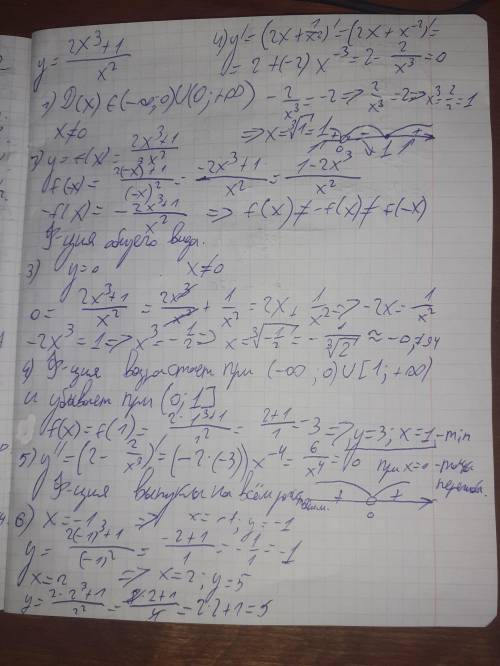 y = (2x³+1)/x²
4) y' = (2x + 1/x²)' = (2x + x⁻²)' =
= 2 + (-2) x⁻³ = 2 - 2/x³ = 0
1) D(x) ∈ (-∞; 0) ∪ (0; +∞)
- 2/x³ = -2 => 2/x³ = 2 => x³ = 2/2 = 1
x ≠ 0
=> x = ∛1 = 1
2) y = f(x) = (2x³+1)/x²
f(-x) = (2(-x)³+1)/(-x)² = (-2x³+1)/x² = (1-2x³)/x²
-f(x) = -(2x³+1)/x² => f(x) ≠ -f(x) ≠ f(-x)
Ф-ция общего вида.
3) y=0 x≠0
0 = (2x³+1)/x² = 2x³/x² + 1/x² = 2x + 1/x² => -2x = 1/x²
-2x³ = 1 => x³ = -1/2 => x = ∛(-1/2) = -1/∛2 ≈ -0,794
4) Ф-ция возрастает при (-∞; 0) ∪ [1; +∞)
и убывает при (0; 1]
f(x) = f(1) = (2·1³+1)/1² = (2+1)/1 = 3 => y=3; x=1 - min
5) y'' = (2 - 2/x³)' = (-2·(-3)) x⁻⁴ = 6/x⁴ = 0 при x=0 - точка
перегиба.
Ф-ция выпукла на всём
6) x = -1 => x = -1; y = -1
y = (2(-1)³+1)/(-1)² = (-2+1)/1 = -1/1 = -1
x = 2 => x = 2; y = 5